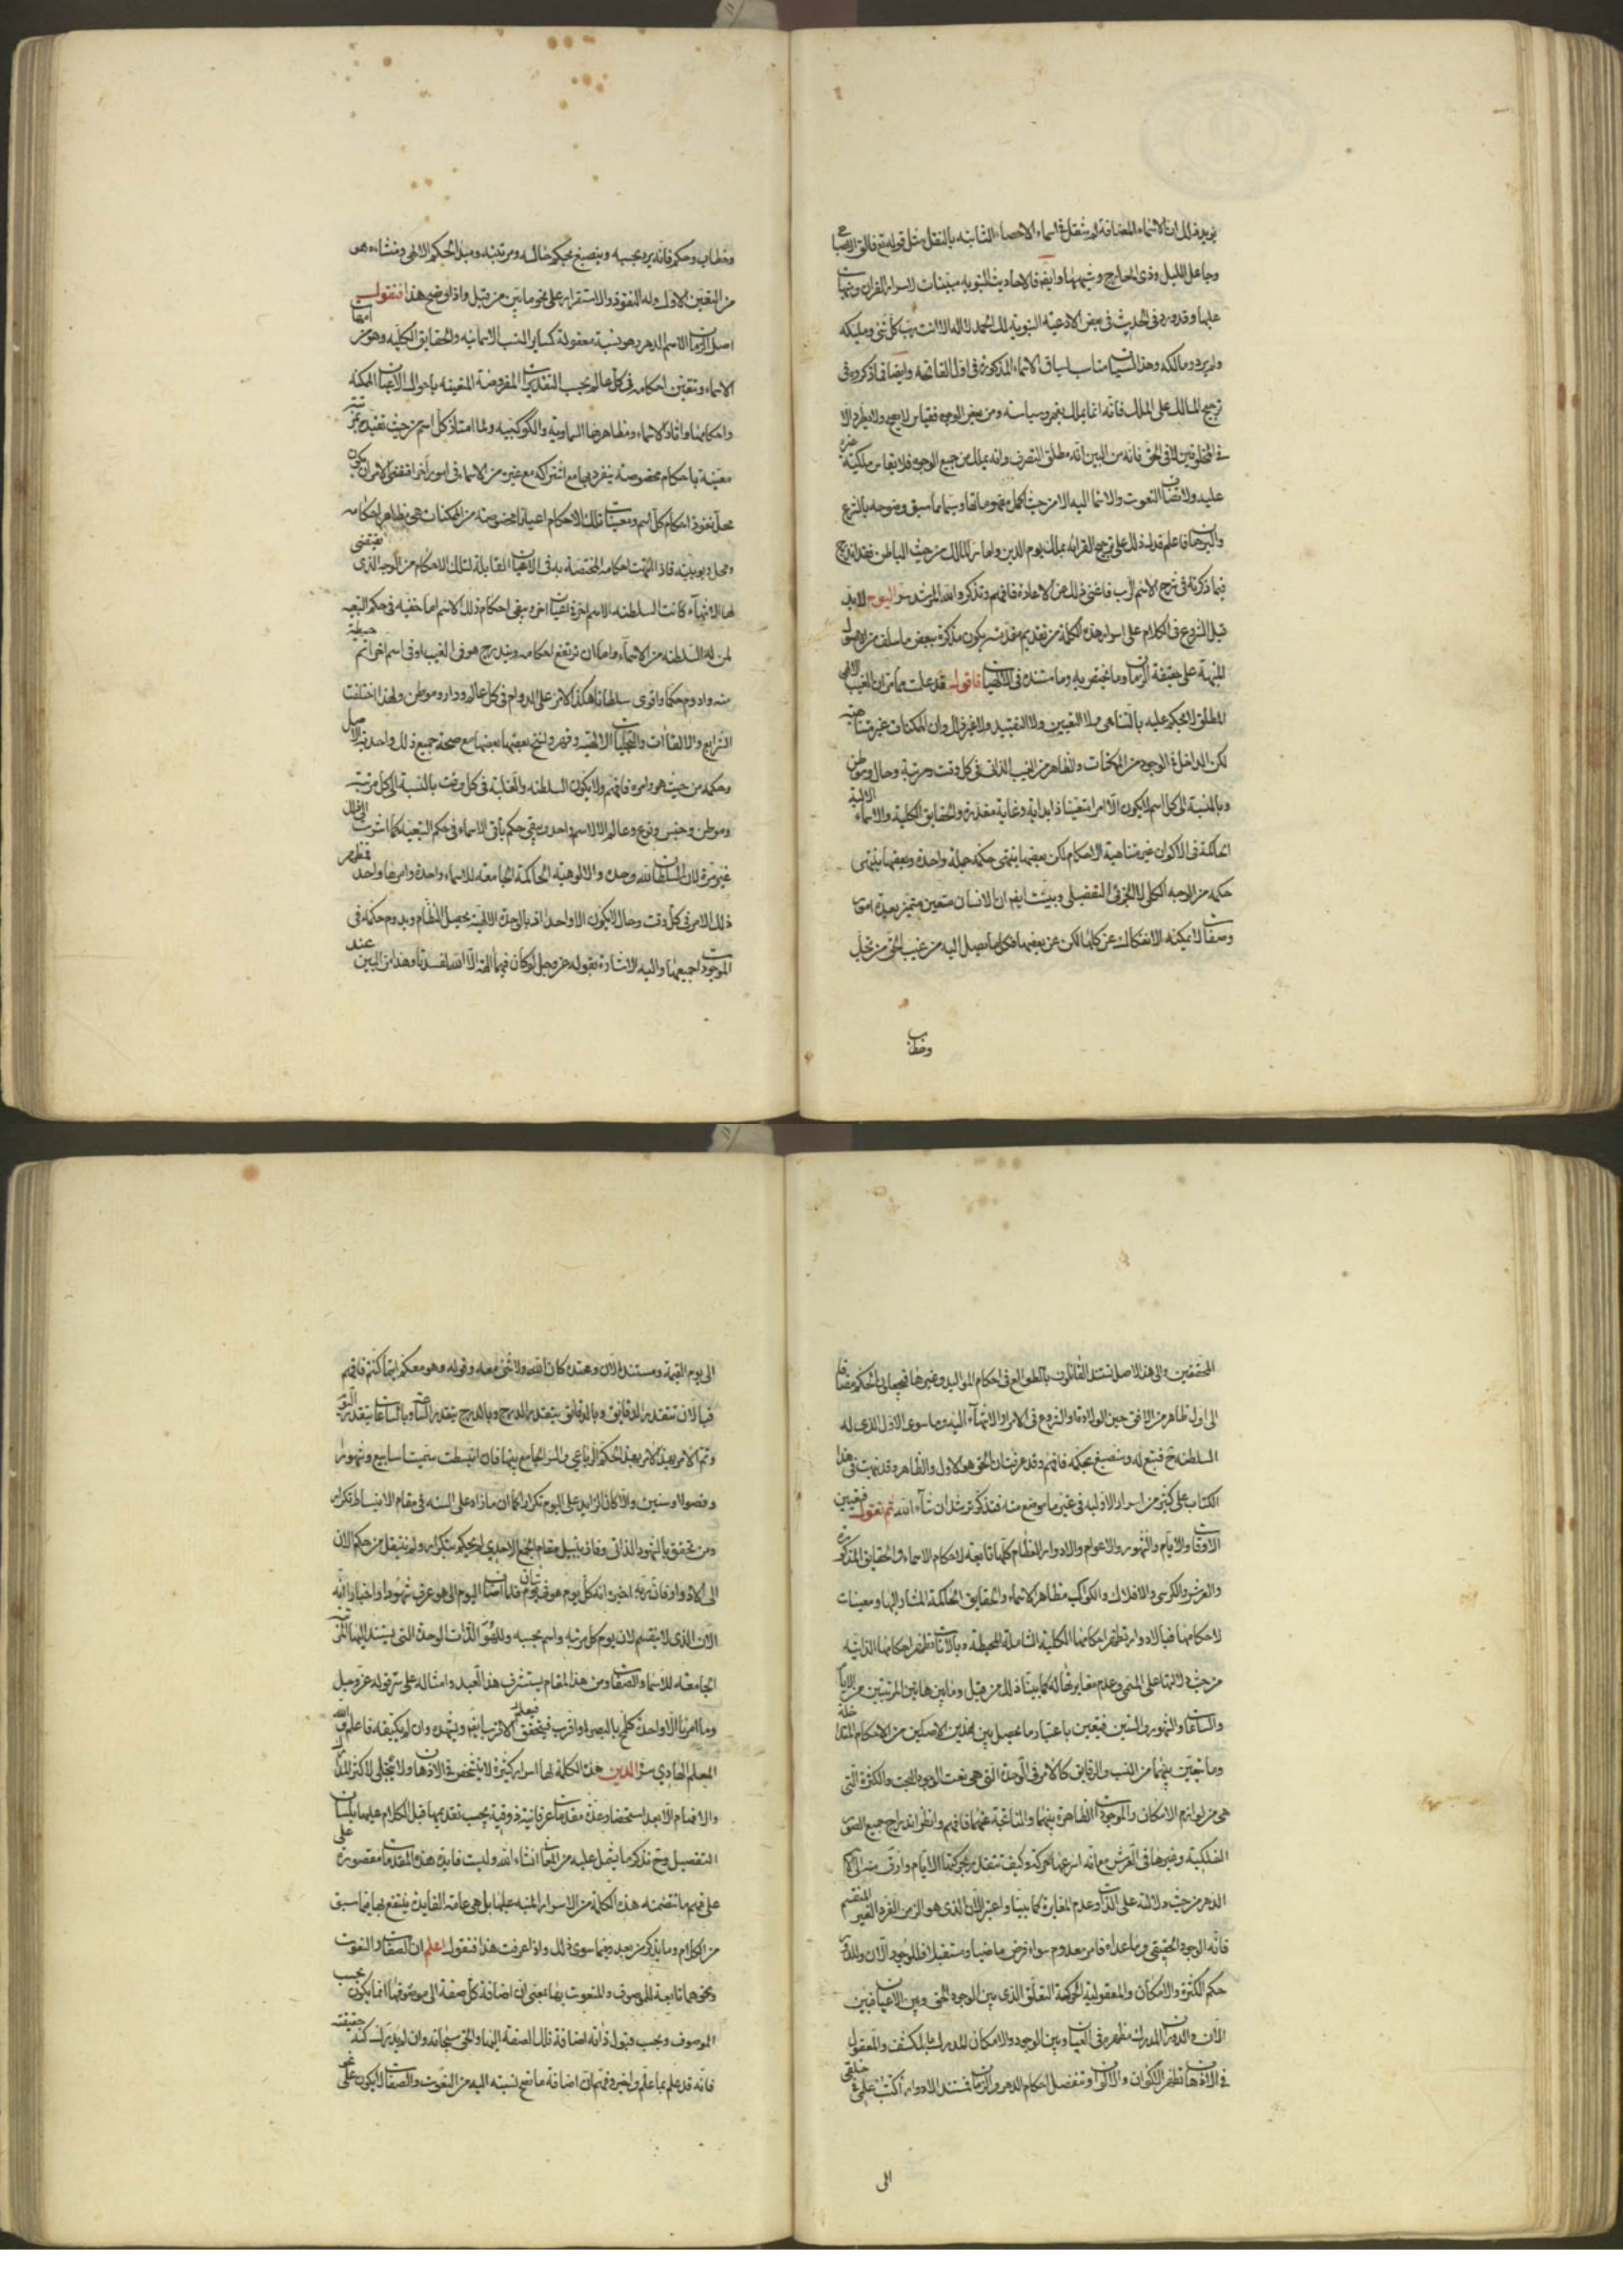 يريد ذلك ان الاسماء المضافة لم تنقل في اسماء الاحصاء الثابتة بالنقل مثل قوله تع فالق الاصباح
وجاعل الليل وذي المعارج وشبهها وايضا فالاحاديث النبويه مبينات لاسرار القران ومنبهات
عليها وقد ورد في الحديث في بعض الادعيه النبوية لك الحمد لا اله الا انت رب كل شئ ومليكه
ولم يرد ومالكه وهذا السياق مناسب لسياق الاسماء المذكورة في اول الفاتحه وايضا فما ذكروه في
ترجيح المالك على الملك فانه انما يملك بقهر وسياسته ومن بعض الوجوه فقياس لا يصح ولا يطرد الا
في المخلوقين لا في الحق فانه من البين انه مطلق التصرف وانه يملك من جميع الوجوه فلا يقاس ملكية غيره
عليه ولا تضاف النعوت والاسما اليه الا من حيث اكمل مفهوماتها وسيما ما سبق وضوحه بالشرع
والبرهان فاعلم ذلك على ترجيح القراءة بملك يوم الدين واما سر المالك من حيث الباطن فقد اندرج
فيما ذكرته في شرح الاسم الرب فاغنى ذلك عن الاعادة فافهم وتذكر والله المرشد سر اليوم لابد
قبل الشروع في الكلام على اسرار هذه الكلمة من تقديم مقدمة يكون مذكرة ببعض ما سلف من الاصول
المنبهة على حقيقة الزمان وما يختص به وما مستنده في الالهيات فاقول قد علمت مما مر ان الغيب الالهي
المطلق لا يحكم عليه بالتناهي ولا التعيين ولا التقييد ولا غير ذلك وان الممكنات غير متناهية
لكن الداخل في الوجود من الممكنات والظاهر من الغيب الذاتي في كل وقت ومرتبة وحال وموطن
وبالنسبة الى كل اسم لا يكون الا امرا متعينا ذا بداية وغاية مقدرة والحقايق الكلية والاسماء الالهية
الحاكمة في الاكوان غير متناهية الاحكام لكن بعضها ينتهي حكمه جملة واحدة وبعضها ينتهي
حكمه من الوجه الكلي لا الجزئي التفصيلي وبينت ايضا ان الانسان متعين متميز بعدة امور
وصفات لا يمكنه الانفكاك عن كلها لكن عن بعضها فكل ما يصل اليه من غيب الحق من تجل
وخطاب
وخطاب وحكم فانه يرد بحسبه وينصبغ بحكم حاله ومرتبته ومبدا الحكم الالهي ومنشاءه هو
من التعين الاول وله النفوذ والاستقرار على نحو ما بين من قبل واذا وضح هذا فنقول
اصل الزمان الاسم الدهر وهو نسبة معقولة كساير النسب الاسمائيه والحقايق الكليه وهو من امهات
الاسماء وتتعين احكامه في كل عالم بحسب التقديرات المفروضة المتعينه باحوال الاعيان الممكنه
واحكامها واثار الاسماء ومظاهرها السماوية والكوكبيه ولما امتاز كل اسم من حيث تقيده بمرتبة
معينة باحكام مخصوصة ينفرد بها مع اشتراكه مع غيره من الاسماء في امور اخر اقتضى الامر ان يكون
محل نفوذ احكام كل اسم ومعينات تلك الاحكام اعيانا مخصوصة من الممكنات هي مظاهر احكامه
ومحل ربوبيته فاذا انتهت احكامه المختصة به في الاعيان القابلة لتلك الاحكام من الوجه الذي يقتضي
لها الانتهاء كانت السلطنه لاسم اخر في اعيان اخر ويبقى احكام ذلك الاسم اما خفيه في حكم التبعيه
لمن له السلطنه من الاسماء واما ان ترتفع احكامه ويندرج هو في الغيب او في اسم اخر اتم حيطة
منه وادوم حكما واقوى سلطانا هكذا الامر على الدوام في كل عالم ودار وموطن ولهذا اختلفت
الشرايع والالقاآت والتجليات الالهيه وقهر ونسخ بعضها بعضا مع صحة جميع ذلك واحديه الاصل
وحكمه من حيث هو وامره فافهم ولا يكون السلطنه والغلبة في كل وقت بالنسبة الى كل مرتبة
وموطن وجنس ونوع وعالم الا لاسم واحد ويبقى حكم باقي الاسماء في حكم التبعيه كما اشرت الى ذلك
غير مرة لان السلطان لله وحده والالوهية الحاكمة الجامعة للاسماء واحدة وامرها واحد فمظهر
ذلك الامر في كل وقت وحال لا يكون الا واحدا اذ بالوحدة الالهية يحصل النظام ويدوم حكمه في
الموجودات جميعها واليه الاشارة بقوله عز وجل لو كان فيهما الهة الا الله لفسدتا وهذا من البين عند
المحققين والى هذا الاصل تستند القائلون بالطوالع في احكام المواليد وغيرها فيجعلون الحكم مضافا
الى اول ظاهر من الافق حين الولادة والشروع في الامر او الانتهاء اليه وما سوى الاول الذي له
السلطنة ح فتبع له ومنصبغ بحكمه فافهم وقد عرفت ان الحق هو الاول والظاهر وقد نبهت في هذا
الكتاب على كثير من اسرار الاولية في غير ما موضع منه فتذكر ترشد ان شاء الله ثم نقول فتعيين
الاوقات والايام والشهور والاعوام والادوار العظام كلها تابعة لاحكام الاسماء والحقايق المذكورة
والعرش والكرسي والافلاك والكواكب مظاهر الاسماء والحقايق الحاكمة المشار اليها ومعينات
لاحكامها فبالادوار تظهر احكامها الكلية الشاملة المحيطة وبالآنات تظهر احكامها الذاتيه
من حيث دلالتها على المسمى وعدم مغايرتها له كما بينا ذلك من قبل وما بين هاتين المرتبتين من الايام
والساعات والشهور والسنين فيتعين باعتبار ما يحصل بين هذين الاصلين من الاحكام المتداخلة
وما يتعين بينهما من النسب والرقايق كالامر في الوحدة التي هي نعت الوجود البحت والكثرة التي
هي من لوازم الامكان والموجودات الظاهرة بينهما والناتجة عنهما فافهم وانظر اندراج جميع الصور
الفلكية وغيرها في العرش مع انه اسرعها حركة وكيف تتقدر بحركتها الايام وارق منه الى
الدهر من حيث دلالته على الذات وعدم المغايرة كما بينا واعتبر الآن الذي هو الزمن الفرد الغير المنقسم
فانه الوجود الحقيقي وما عداه فامر معدوم سواء فرض ماضيا او مستقبلا فللوجود الآن وللدور
حكم الكثرة والامكان والمعقولية الحركة التعلق الذي بين الوجود الحق وبين الاعيان فبين
الآن والدوران المدرك مظهره في العيان وبين الوجود والامكان المدرك بالكشف والمعقول
في الاذهان تظهر الاكوان والالوان وتنفصل احكام الدهر والزمان فتستند الادوار اكتب علمي في خلقي
الى
الى يوم القيمة ومستند الآن ومحتده كان الله ولا شئ معه وقوله وهو معكم اينما كنتم فافهم
فبالآن تتقدر الدقايق وبالدقايق يتقدر الدرج وبالدرج يتقدر الساعة وبالساعات يتقدر اليوم
وتم الامر بهذا الحكم الرباعي والسر الجامع بينها فان انبسطت سميت اسابيع وشهورا
وفصولا وسنين والا كان الزايد على اليوم تكرارا كما ان ما زاد على السنه في مقام الانبساط تكرار
ومن تحقق بالشهود الذاتي وفاز بنيل مقام الجمع الاحدي لم يحكم بتكرار ولم ينتقل من حكم الآن
الى الادوار فان ربه اخبره انه كل يوم هو في شان فلما اضاف اليوم الى هو عرف شهودا واخبارا انه
الآن الذي لا ينقسم لان يوم كل مرتبة واسم بحسبه وللهو الذات الوحدة التي يستند اليها المرتبة
الجامعة للاسما والصفات ومن هذا المقام يستشرف هذا العبد وامثاله على سر قوله عز وجل
وما امرنا الا واحدة كلمح بالبصر او اقرب فيتحقق الاقرب ايضا ويشهده وان لم يكيفه فاعلم والله
المعلم الهادي سر الدين هذه الكلمة لها اسرار كثيرة لا يتشخص في الاذهان ولا ينجلي لاكثر المدارك
والافهام الا بعد استحضار عدة مقدمات عرفانية ذوقية يجب تقديمها قبل الكلام عليها بلسان
التفصيل وح نذكر ما يشمل عليه من المعاني انشاء الله وليست فايدة هذه المقدمات مقصورة على
على فهم ما تضمنته هذه الكلمة من الاسرار المنبه عليها بل هي عامة الفايدة ينتفع بها فيما سبق
من الكلام وما يذكر من بعد وفيما سوى ذلك واذا عرفت هذا فنقول اعلم ان الصفات والنعوت
ونحوهما تابعة للموصوف والمنعوت بها بمعنى ان اضافة كل صفة الى موصوفها انما يكون بحسب
الموصوف وبحسب قبول ذاته اضافة تلك الصفة اليها والحق سبحانه وان لم يدرك كنه حقيقته
فانه قد علم بما علم واخبر وفهم ان اضافة ما تصح نسبته اليه من النعوت والصفات لا يكون على نحو